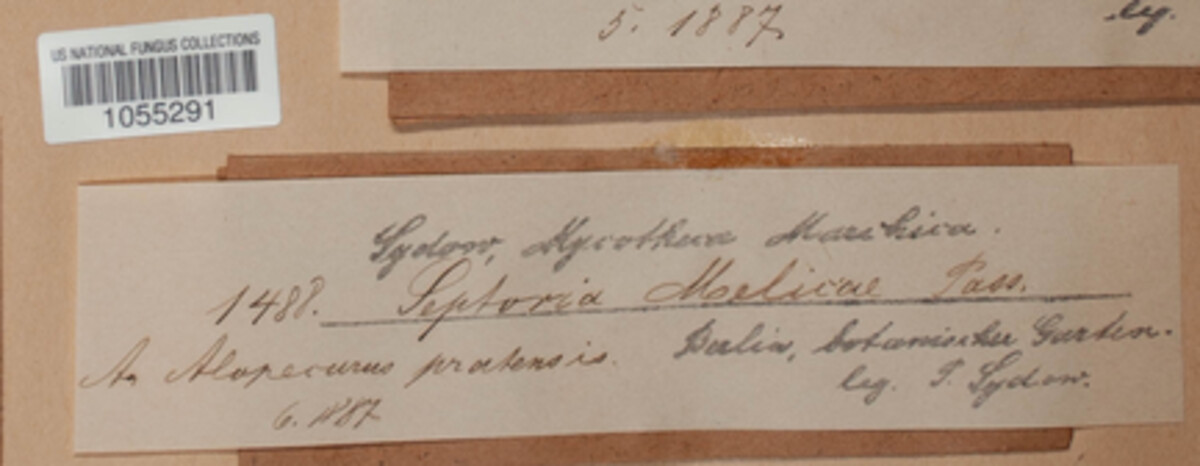 5. 1887
leg.
US NATIONAL FUNGUS COLLECTIONS
1055291
Sydow, Mycotheca Marchica.
1488. Septoria Melicae Pass.
An Alopecurus pratensis.
Berlin, botanischer Garten.
leg. P. Sydow.
6. 1887